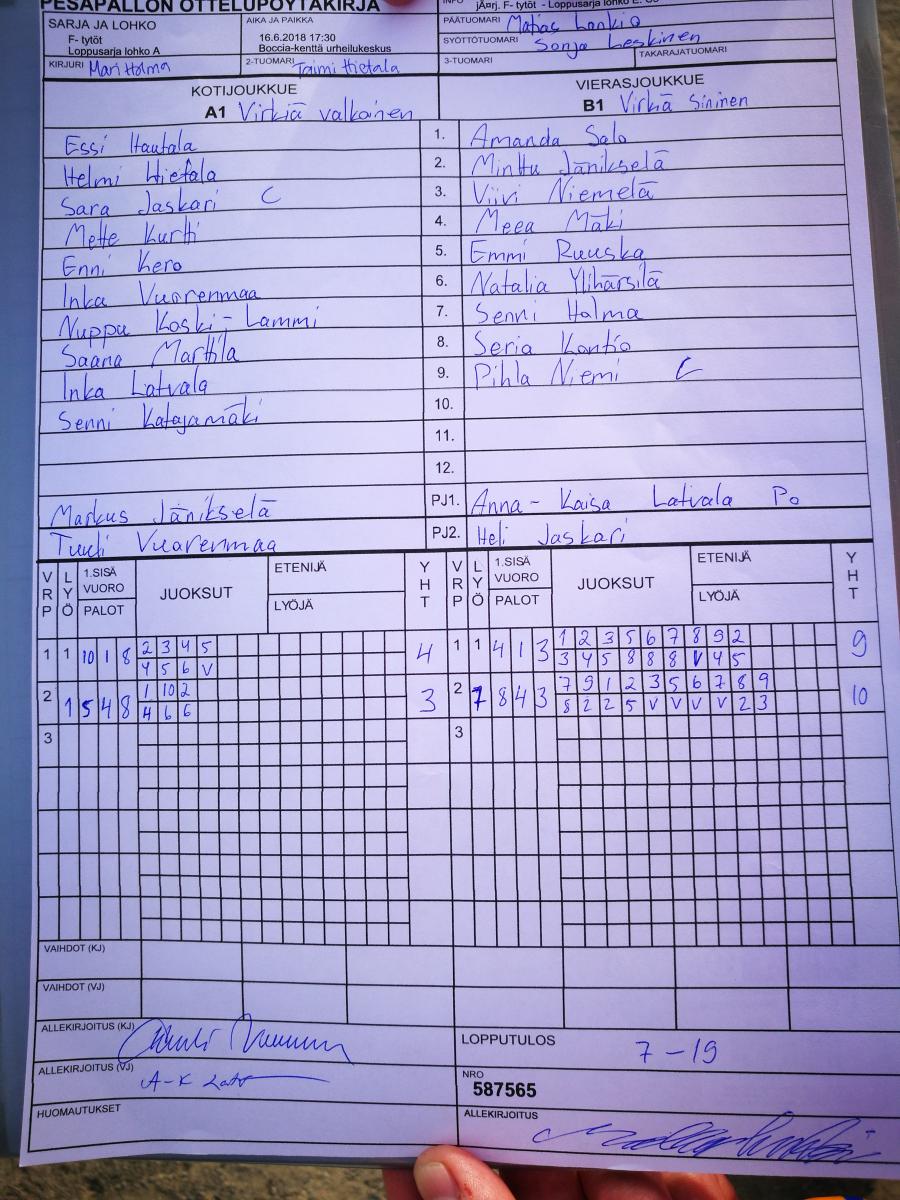 PESÄPALLON OTTELUPÖYTÄKIRJA
SARJA JA LOHKO
F- tytöt
Loppusarja lohko A
AIKA JA PAIKKA
16.6.2018 17:30
Boccia-kenttä urheilukeskus
INFO
jÄ¤rj. F- tytöt - Loppusarja lohko
PÄÄTUOMARI
SYÖTTÖTUOMARI Sonja Leskinen
KIRJURI Mari Holma
2-TUOMARI Taimi Hietala
3-TUOMARI
TAKARAJATUOMARI
KOTIJOUKKUE
A1 Virkiä valkoinen
VIERASJOUKKUE
B1 Virkiä sininen
Essi Hautala 1. Amanda Salo
Helmi Hietala 2. Minttu Jänikselä
Sara Jaskari C 3. Viivi Niemelä
Mette Kurtti 4. Meea Mäki
Enni Kero 5. Emmi Ruuska
Inka Vuorenmaa 6. Natalia Ylihärsilä
Nuppu Koski-Lammi 7. Senni Holma
Saana Marttila 8. Seria Kontio
Inka Latvala 9. Pihla Niemi C
Senni Katajamäki 10.
11.
12.
Markus Jänikselä PJ1. Anna-Kaisa Latvala Po
Tuuli Vuorenmaa PJ2. Heli Jaskari
VRP LYÖ 1.SISÄ VUORO PALOT JUOKSUT ETENIJÄ LYÖJÄ YHT VRP LYÖ 1.SISÄ VUORO PALOT JUOKSUT ETENIJÄ LYÖJÄ YHT
1 1 10 1 8 2 3 4 5 4 1 1 4 1 3 1 2 3 5 6 7 8 9 2 9
4 5 6 V 3 4 5 8 8 8 V 4 5
2 1 5 4 8 1 10 2 3 2 7 8 4 3 7 9 1 2 3 5 6 7 8 9 10
4 6 6 8 2 2 5 V V V V 2 3
3 3
VAIHDOT (KJ)
VAIHDOT (VJ)
ALLEKIRJOITUS (KJ)
LOPPUTULOS 7-19
ALLEKIRJOITUS (VJ) A-K
NRO
587565
HUOMAUTUKSET
ALLEKIRJOITUS